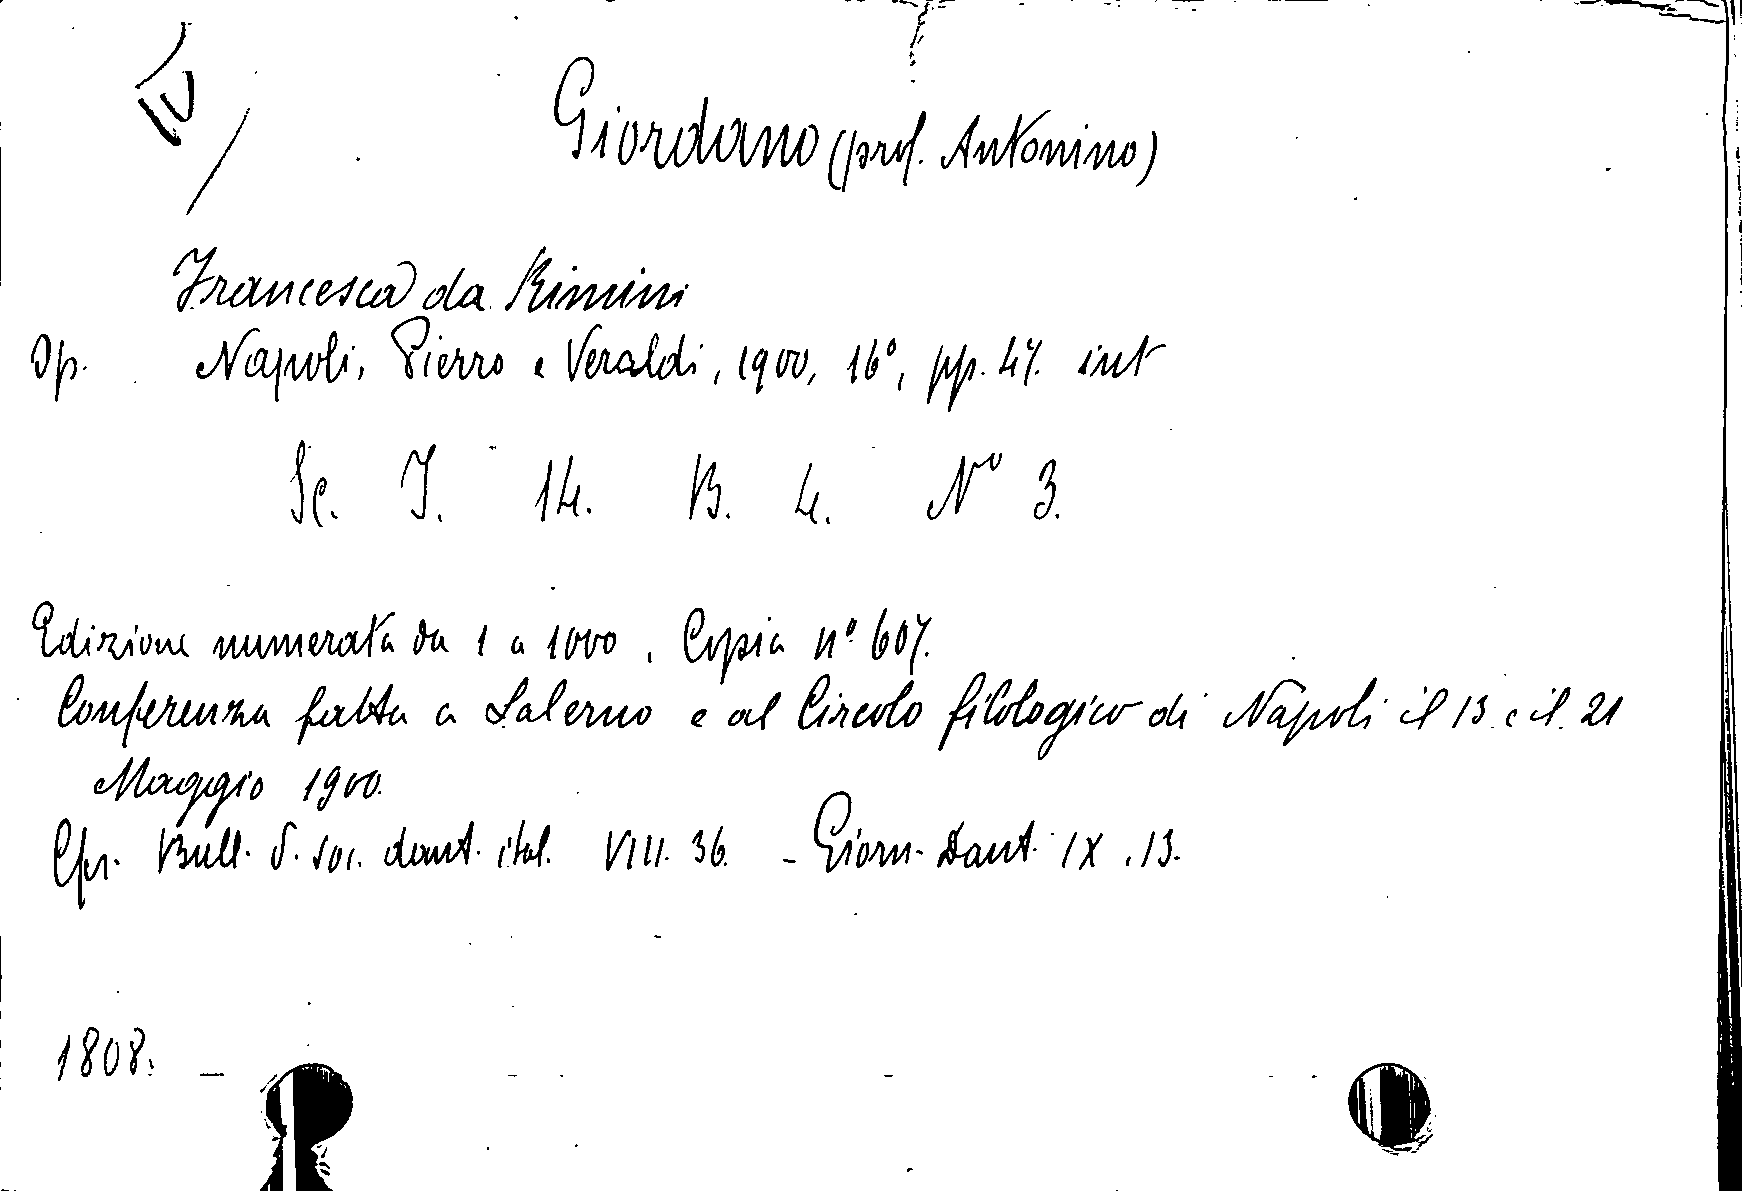 Giordano (prof. Antonino)
Francesca da Rimini
Op. Napoli, Pierro e Veraldi, 1900, 16°, pp. 47. int
Sc. I. 14. B. 4. N° 3.
Edizione numerata da 1 a 1000. Copia n° 607.
Conferenza fatta a Salerno e al Circolo filologico di Napoli il 13 e il 21
Maggio 1900.
Cfr. Bull. d. soc. dant. ital. VIII. 36. - Giorn. Dant. IX. 13.
1808.